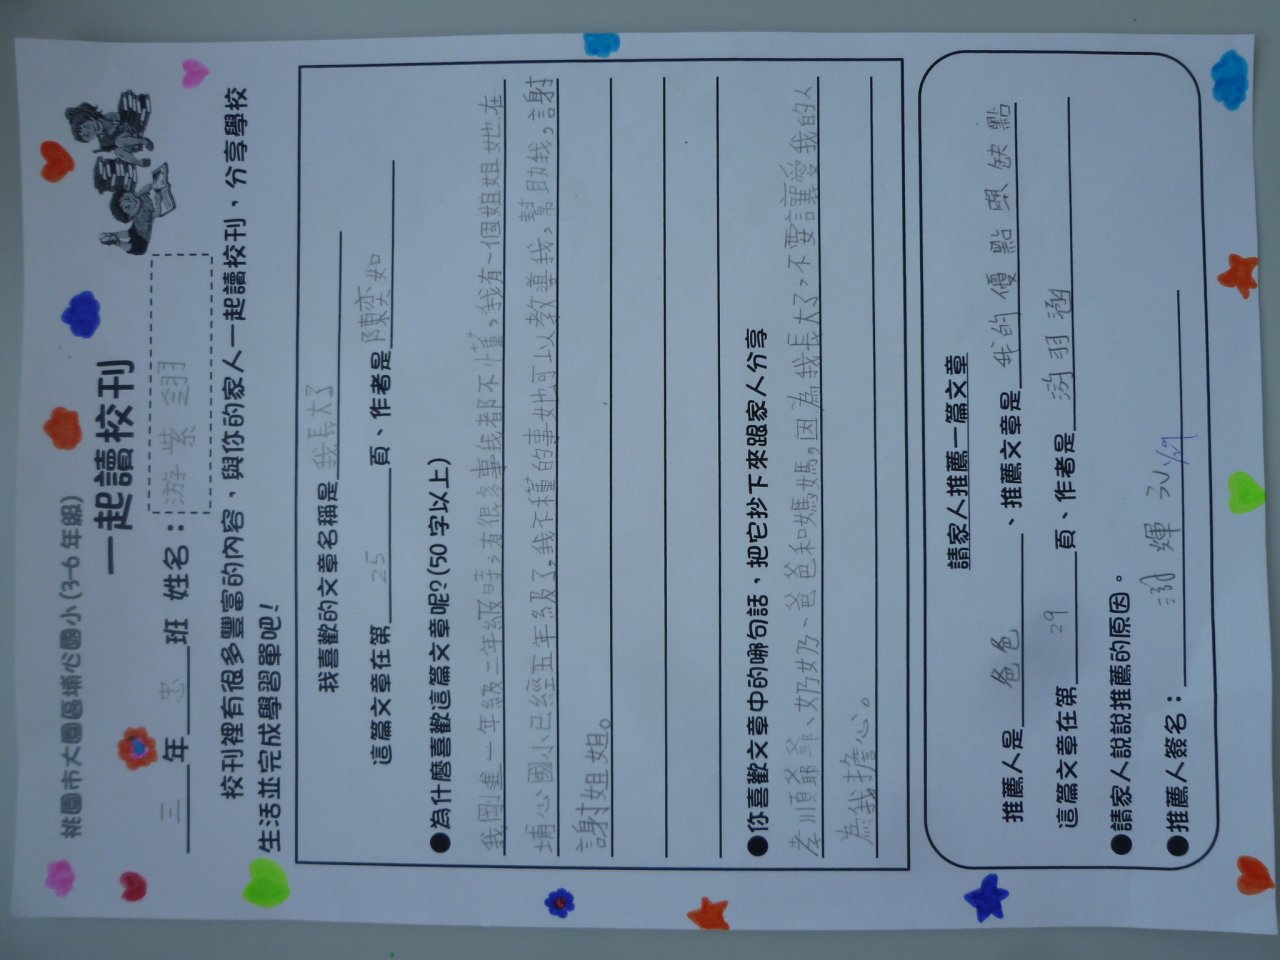 桃園市大園區埔心國小(3-6年級)
一起讀校刊
三年忠班 姓名：游紫翎
校刊裡有很多豐富的內容，與你的家人一起讀校刊，分享學校
生活並完成學習單吧！
我喜歡的文章名稱是我長大了
這篇文章在第25頁、作者是陳奕如
●為什麼喜歡這篇文章呢?(50字以上)
我剛進一年級二年級時,有很多事我都不懂,我有一個姐姐她在
埔心國小已經五年級了,我不種的事她可以教導我,幫助我,謝
謝姐姐。
●你喜歡文章中的哪句話，把它抄下來跟家人分享
孝順爺爺、奶奶、爸爸和媽媽,因為我長大了,不要讓愛我的人
為我擔心。
請家人推薦一篇文章
推薦人是爸爸、推薦文章是我的優點與缺點
這篇文章在第29頁、作者是游羽涵
●請家人說說推薦的原因。
●推薦人簽名：